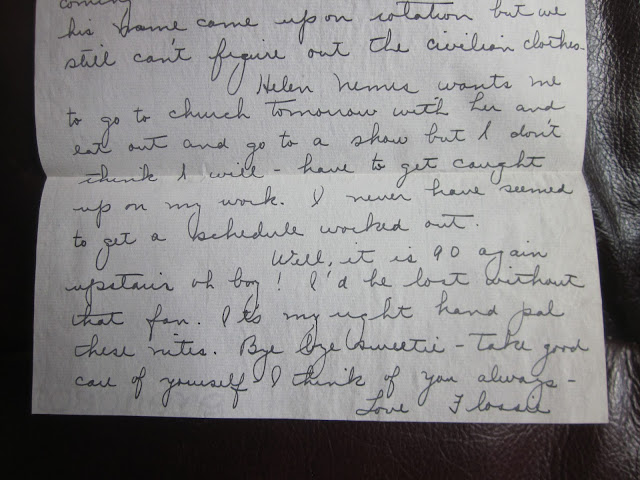 coming
his name came up on rotation but we
still can't figure out the civilian clothes.
Helen Nemes wants me
to go to church tomorrow with her and
eat out and go to a show but I don't
think I will - have to get caught
up on my work. I never have seemed
to get a schedule worked out.
Well, it is 90 again
upstairs oh boy! I'd be lost without
that fan. It's my right hand pal
these nites. Bye bye sweetie - take good
care of yourself I think of you always -
Love Flossie